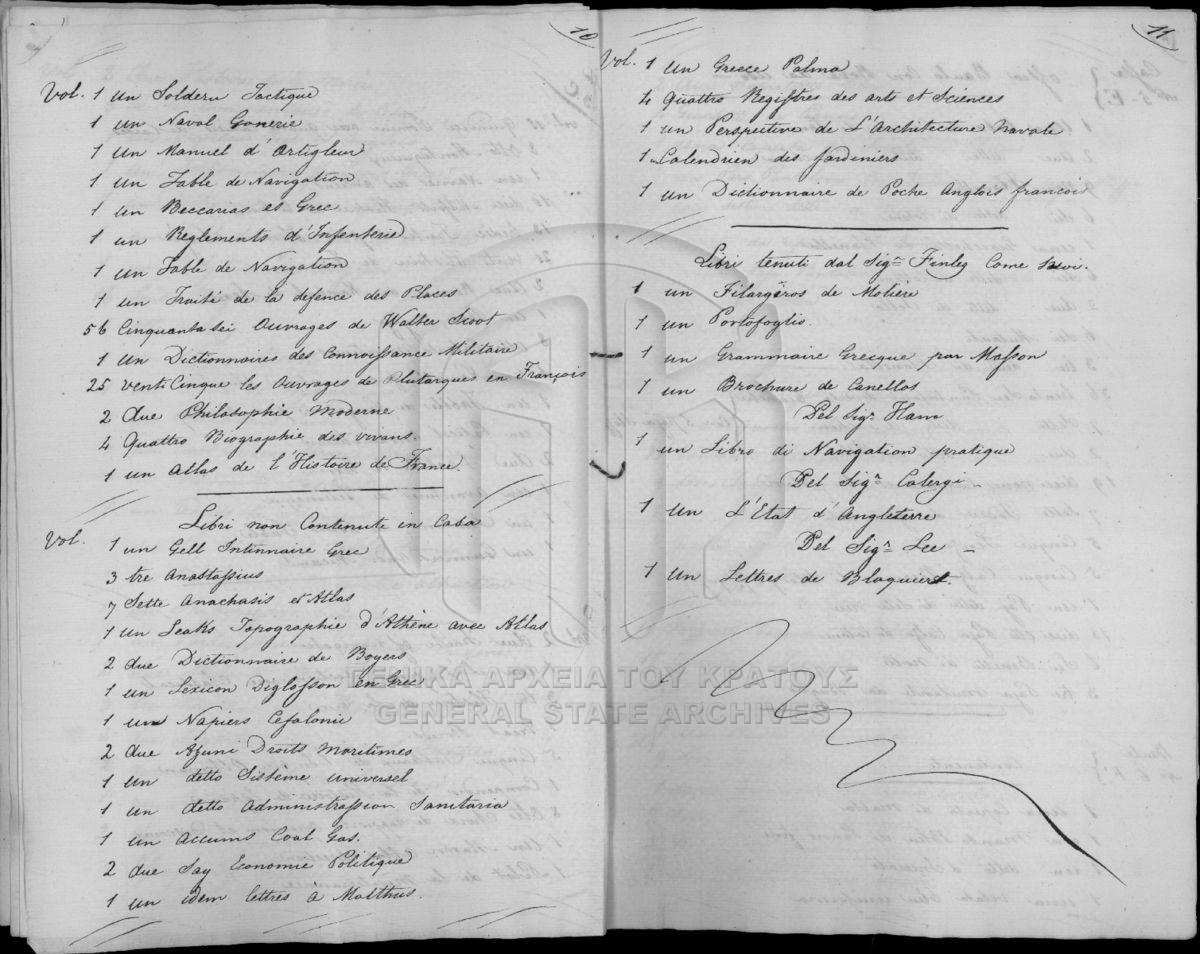 10
Vol. 1 un Solderu Tactique
1 un Naval Gonerie
1 un Manuel d'Artigleur
1 un Table de Navigation
1 un Beccarias es Grec
1 un Reglements d'Infenterie
1 un Table de Navigation
1 un Traité de la defence des Places
56 Cinquanta sei Ouvrages de Walter Scoot
1 un Dictionnaires des Connoissance Militaire
25 venti Cinque les Ouvrages de Plutarques en François
2 due Philosophie Moderne
4 Quattro Biographie des vivans.
1 un Atlas de l'Histoire de France.
Libri non Contenute in Casa
Vol.
1 un Gell Intinnaire Grec
3 tre Anastassius
7 Sette Anachasis et Atlas
1 un Leaks Topographie d'Athène avec Atlas
2 due Dictionnaire de Boyers
1 un Lexicon Diglosson en Grec
1 un Napiers Cefalonie
2 due Azuni Droits Maritimes
1 un detto Sistéme universel
1 un detto Administrassion Sanitaria
1 un Accums Coal Gas.
2 due Say Economie Politique
1 un idem lettres à Malthus.
11
Vol. 1 un Greece Palma
4 Quattro Registres des arts et Sciences
1 un Perspetive de L'Architecture Navale
1 " Calendrien des Jardiniers
1 un Dictionnaire de Poche Anglois francois
Libri tenuti dal Sigr Finley Come
1 un Filargêros de Molière
1 un Portofoglis.
1 un Grammaire Grecque par Masson
1 un Brochure de Canellos
Del Sigr Hann
1 un Libro di Navigation pratique
Del Sigr Calergi -
1 un L'Etat d'Angleterre
Del Sigr Lee -
1 un Lettres de Blaquiere.
ΓΕΝΙΚΑ ΑΡΧΕΙΑ ΤΟΥ ΚΡΑΤΟΥΣ
GENERAL STATE ARCHIVES